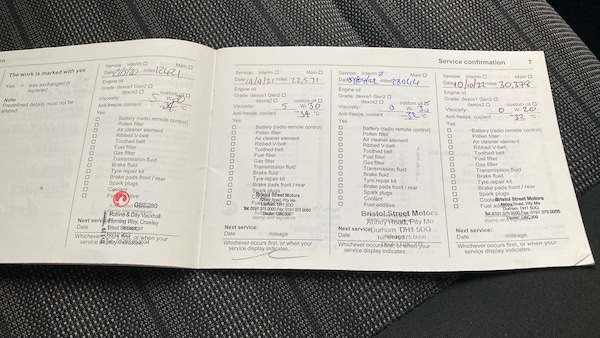 The work is marked with yes
Yes = was exchanged or
replaced
Note
Predefined details must not be
altered
Service: Interim Main
Date miles 12421
Engine oil
Grade: dexos1 Gen2
dexos2 custom oil
Viscosity: 5 W-
Anti-freeze, coolant °C
Yes
Battery (radio remote control)
Pollen filter
Air cleaner element
Ribbed V-belt
Toothed belt
Fuel filter
Gas filter
Transmission fluid
Brake fluid
Tyre repair kit
Brake pads front / rear
Spark plugs
Fuel additive
GBE280
Robins & Day Vauxhall
Fleming Way, Crawley
West Sussex
Next service:
Date
Whichever occurs first, or when your
service display indicates.
Service confirmation 7
Service: Interim Main
Date 14/4/21 miles 22,571
Engine oil
Grade: dexos1 Gen2
dexos2 custom oil
Viscosity: 5 W-30
Anti-freeze, coolant -34 °C
Yes
Battery (radio remote control)
Pollen filter
Air cleaner element
Ribbed V-belt
Toothed belt
Fuel filter
Gas filter
Transmission fluid
Brake fluid
Tyre repair kit
Brake pads front / rear
Spark plugs
Bristol Street Motors
Abbey Road, Pity Me
Durham, DH1 5DQ
Next service:
Date mileage
Whichever occurs first, or when your
service display indicates.
Service: Interim Main
Date miles 28044
Engine oil
Grade: dexos1 Gen2
dexos2 custom oil
Viscosity: 0 W-
Anti-freeze, coolant -32 °C
Yes
Battery (radio remote control)
Pollen filter
Air cleaner element
Ribbed V-belt
Toothed belt
Fuel filter
Gas filter
Transmission fluid
Brake fluid
Tyre repair kit
Brake pads front / rear
Spark plugs
Coolant
Fuel additive
Bristol Street Motors
Abbey Road, Pity Me
Durham DH1 5DQ
Next service:
Date
Whichever occurs first, or when your
service display indicates.
Service: Interim Main
Date 10/10/22 miles 30,378
Engine oil
Grade: dexos1 Gen2
dexos2 custom oil
Viscosity: 0 W-20
Anti-freeze, coolant -32 °C
Yes
Battery (radio remote control)
Pollen filter
Air cleaner element
Ribbed V-belt
Toothed belt
Fuel filter
Gas filter
Transmission fluid
Brake fluid
Tyre repair kit
Brake pads front / rear
Spark plugs
Coolant
Fuel additive
Bristol Street Motors
Abbey Road, Pity Me
Durham, DH1 5DQ
Next service:
Date mileage
Whichever occurs first, or when your
service display indicates.